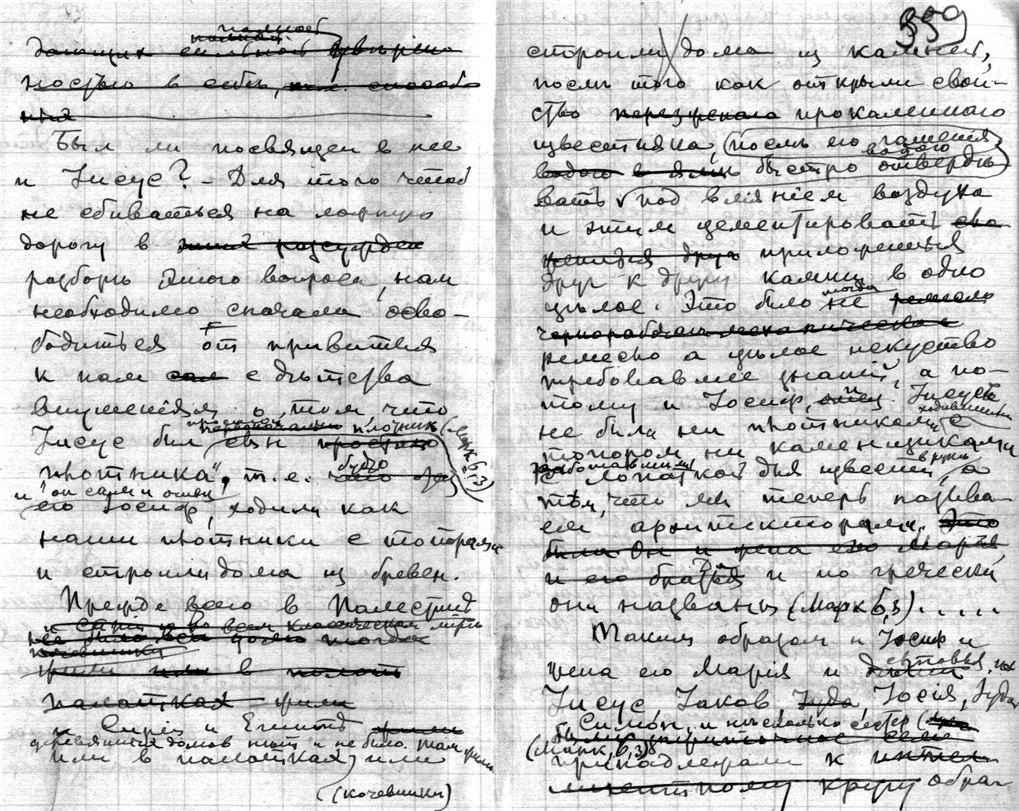 полной
дающих
ностью в себе,
Был ли посвящен в нее
и Іисус? – Для того чтоб
не сбиваться на ложную
дорогу в
разборѣ этого вопроса, нам
необходимо сначала осво-
бодиться от привитая
к нам с дѣтства
внушенія о том, что
Іисус был сын плотник (Марк 6,3)
плотника", т.е. будто
и он сам и отец
его Іосиф, ходили как
наши плотники с топорами
и строили дома из бревен.
Прежде всего в Палестинѣ
палатках жили
и Сиріи и Египтѣ
деревянных домов нѣт и не было. Там жили
или в палатках или
(кочевники)
359
строили дома из камней,
послѣ того как открыли свой-
ство прокаленнаго
известняка, (послѣ его гашенія
водою) быстро отвердѣ
вать под вліяніем воздуха
и этим цементировать
приложенные
друг к другу камни в одно
цѣлое. Это было тогда не
ремесло а цѣлое искусство
требовавшее знаній, а по-
тому и Іосиф, и Іисус
не были ни плотниками с
топором ни каменщиками
с лопаткой для извести в руках, а
тѣм, что мы теперь называ-
ем архитекторами.
и его братья и по гречески
они названы (Марк 6,3).....
Таким образом и Іосиф и
жена его Марія и сыновья их
Іисус Іаков, Іосія, Іуда
Симон, и нѣсколько сестер
(Марк, 6,3)
принадлежали к
кругу обра-